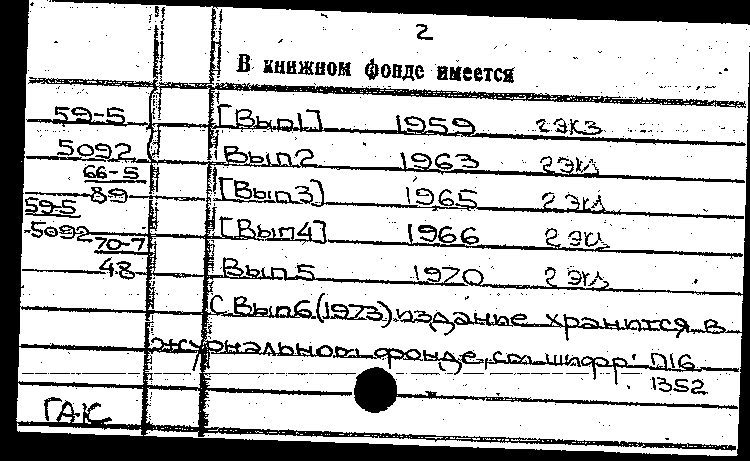 2
В книжном фонде имеется
59-5 [Вып1] 1959 2 экз
5092 Вып2 1963 2 экз
66-5
89 [Вып3] 1965 2 экз
59-5
5092 [Вып4] 1966 2 экз
70-7
48 Вып5 1970 2 экз
С Вып6(1973) издание хранится в
журнальном фонде, см шифр: П16
1352
ГАК